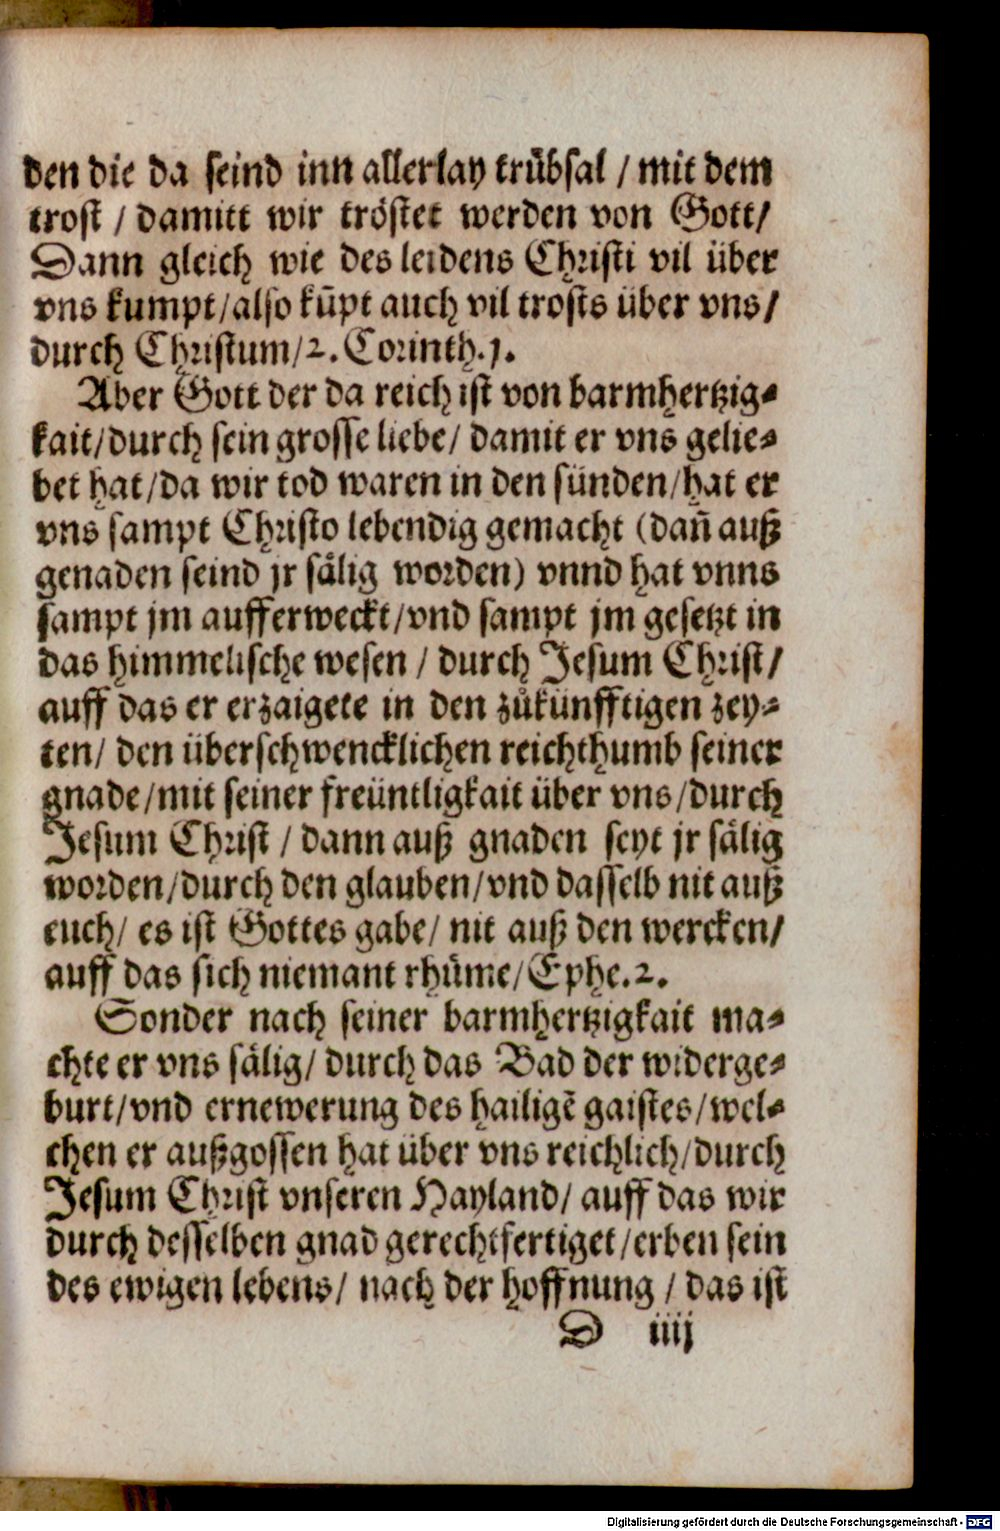 den die da seind inn allerlay trübsal / mit dem
trost / damitt wir tröstet werden von Gott/
Dann gleich wie des leidens Christi vil über
vns kumpt/also kūpt auch vil trosts über vns/
durch Christum/2. Corinth.1.
Aber Gott der da reich ist von barmhertzig⸗
kait/durch sein grosse liebe/ damit er vns gelie⸗
bet hat/da wir tod waren in den sünden/hat er
vns sampt Christo lebendig gemacht (dañ auß
genaden seind jr sälig worden) vnnd hat vnns
sampt jm aufferweckt/vnd sampt jm gesetzt in
das himmelische wesen / durch Jesum Christ/
auff das er erzaigete in den zůkünfftigen zey⸗
ten/ den überschwencklichen reichthumb seiner
gnade/mit seiner freüntligkait über vns/durch
Jesum Christ / dann auß gnaden seyt jr sälig
worden/durch den glauben/vnd dasselb nit auß
euch/ es ist Gottes gabe/ nit auß den wercken/
auff das sich niemant rhüme/Ephe.2.
Sonder nach seiner barmhertzigkait ma⸗
chte er vns sälig/ durch das Bad der widerge⸗
burt/vnd ernewerung des hailigē gaistes/wel⸗
chen er außgossen hat über vns reichlich/durch
Jesum Christ vnseren Hayland/ auff das wir
durch desselben gnad gerechtfertiget/erben sein
des ewigen lebens/ nach der hoffnung / das ist
D iiij
Digitalisierung gefördert durch die Deutsche Forschungsgemeinschaft - DFG